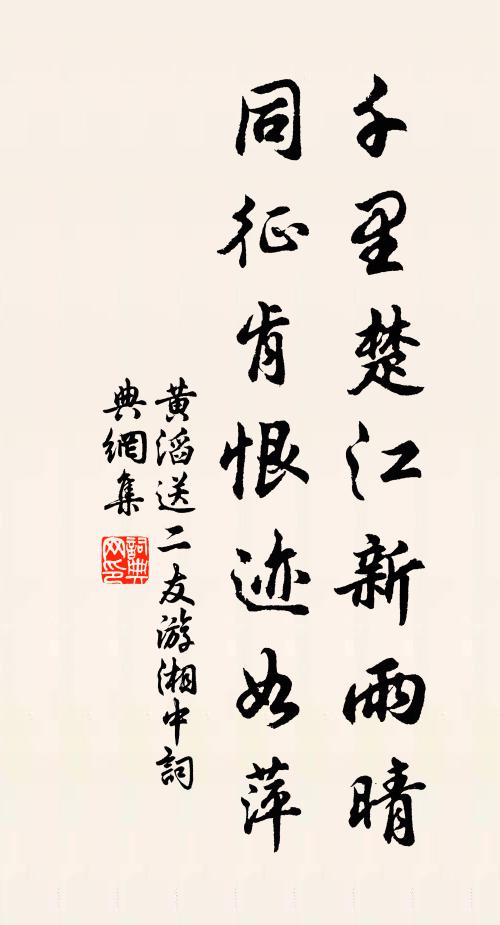 千里楚江新雨晴
同征肯恨迹如萍
黄滔送二友游湘中詞
典網集
詞典网印